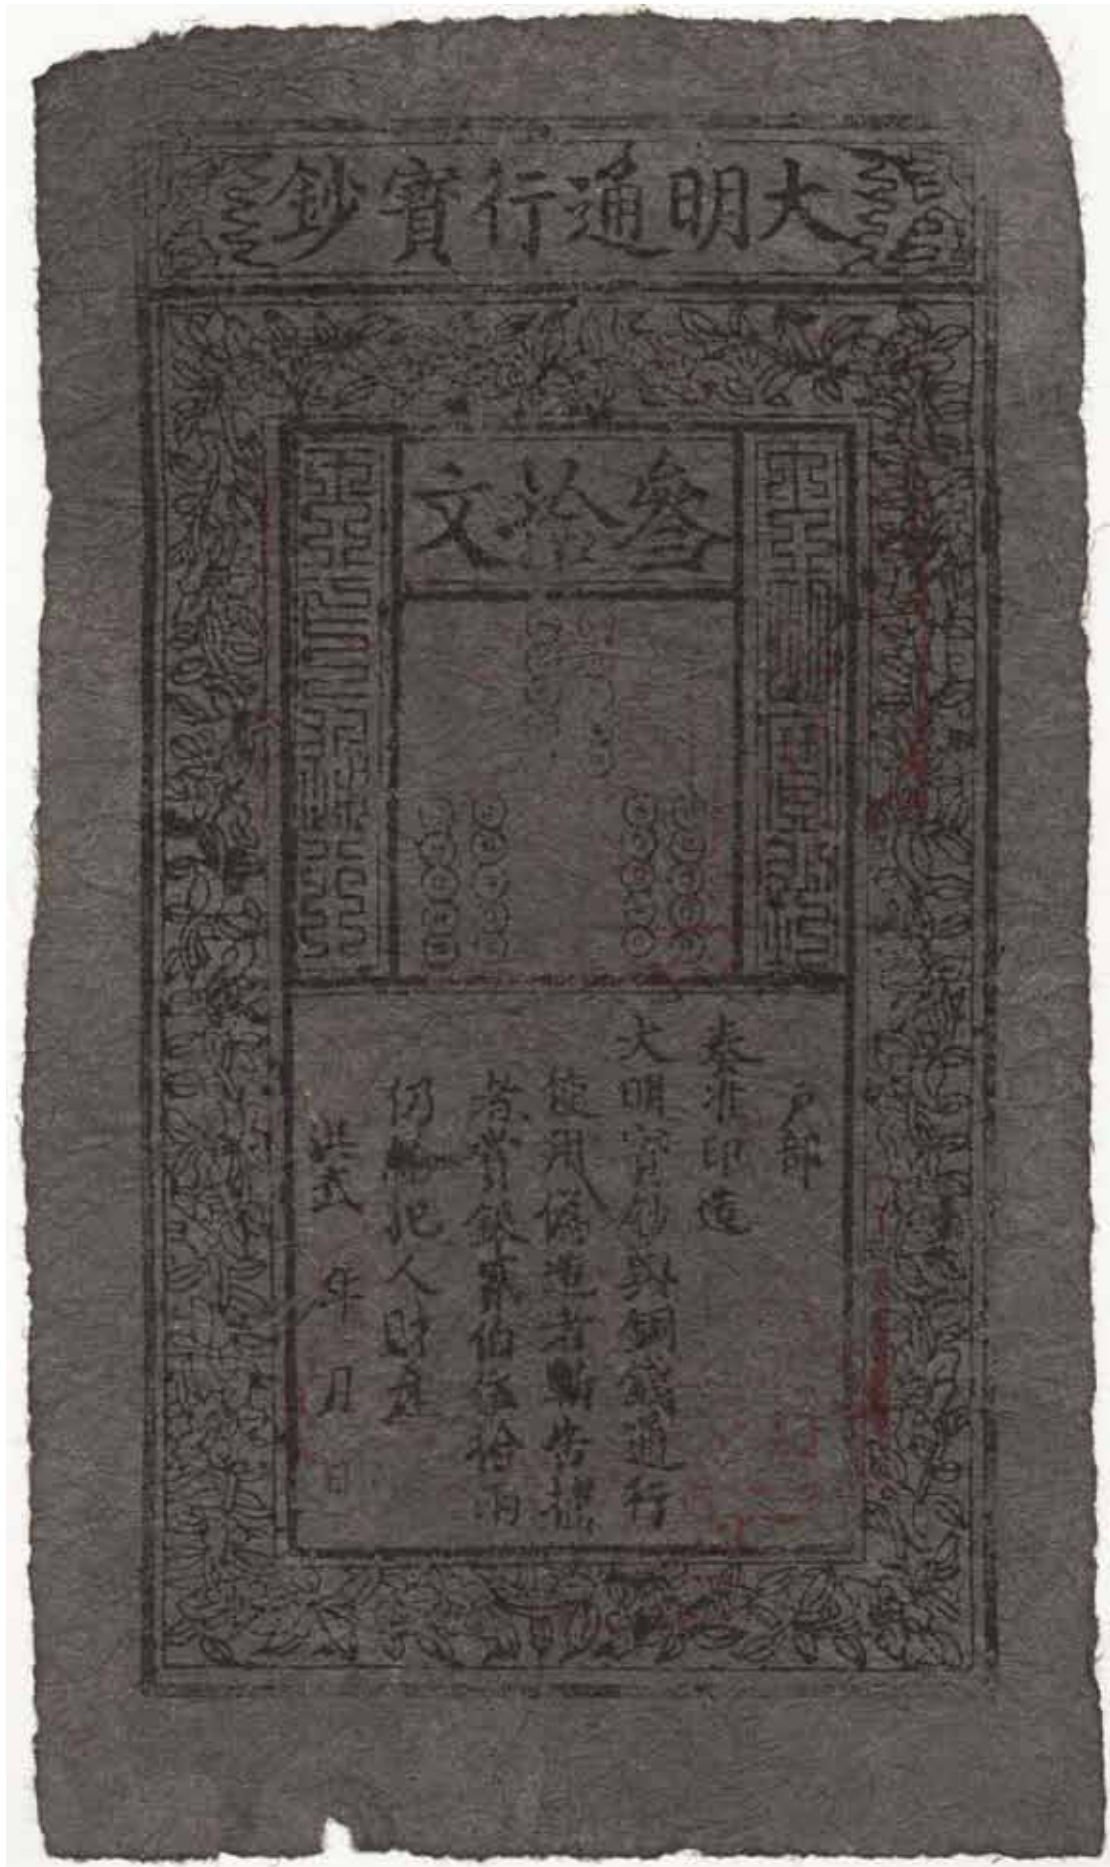 大明通行寶鈔
叁拾文
戶部
奏准印造
大明寶鈔與銅錢通行
使用偽造者斬告捕
者賞銀貳伯伍拾兩
仍給犯人財產
洪武 年 月 日